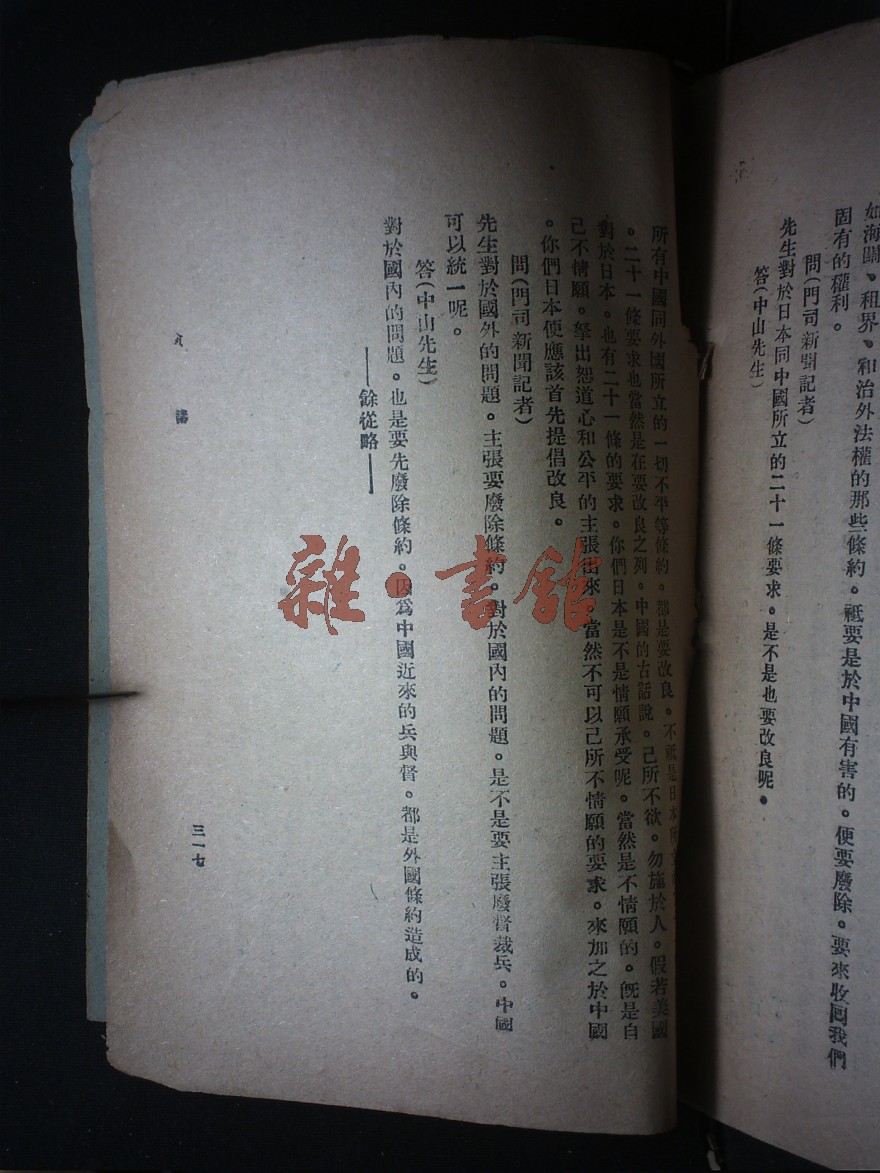 如海關、租界、和治外法權的那些條約。祗要是於中國有害的。便要廢除。要來收回我們
固有的權利。
問(門司新聞記者)
先生對於日本同中國所立的二十一條要求。是不是也要改良呢。
答(中山先生)
所有中國同外國所立的一切不平等條約。都是要改良。不祗是日本所立
。二十一條要求也當然是在要改良之列。中國的古話說。己所不欲。勿施於人。假若美國
對於日本。也有二十一條的要求。你們日本是不是情願承受呢。當然是不情願的。旣是自
己不情願。拏出恕道心和公平的主張出來。當然不可以己所不情願的要求。來加之於中國
。你們日本便應該首先提倡改良。
問(門司新聞記者)
先生對於國外的問題。主張要廢除條約。對於國內的問題。是不是要主張廢督裁兵。中國
可以統一呢。
答(中山先生)
對於國內的問題。也是要先廢除條約。因爲中國近來的兵與督。都是外國條約造成的。
——餘從略——
三一七
雜·書館